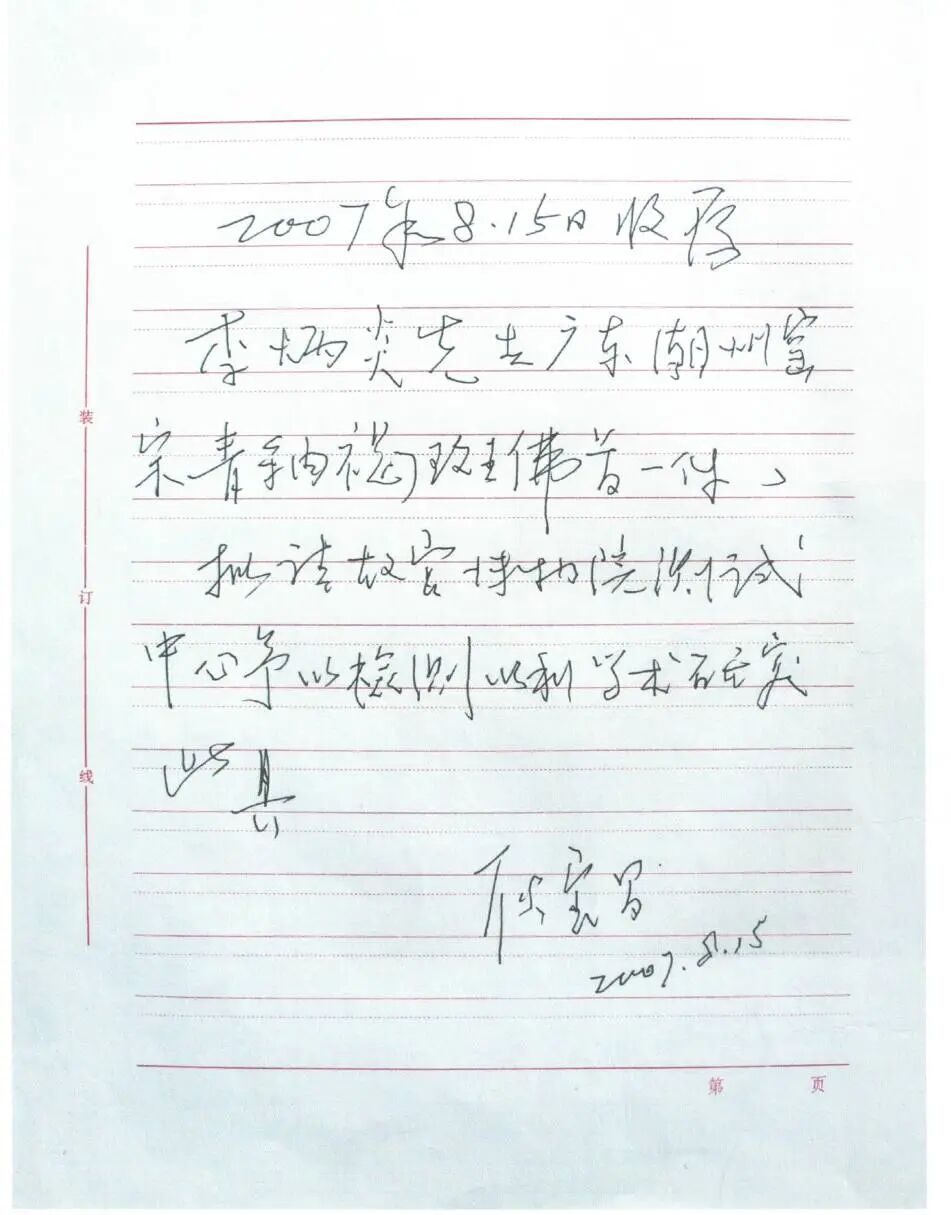 2007年8.15日收存
李炳炎先生广东潮州窑
宋青釉褐斑佛首一件、
拟请故宫博物院测试
中心予以检测以利学术研究
此具
耿宝昌
2007.8.15
装
订
线
第 页